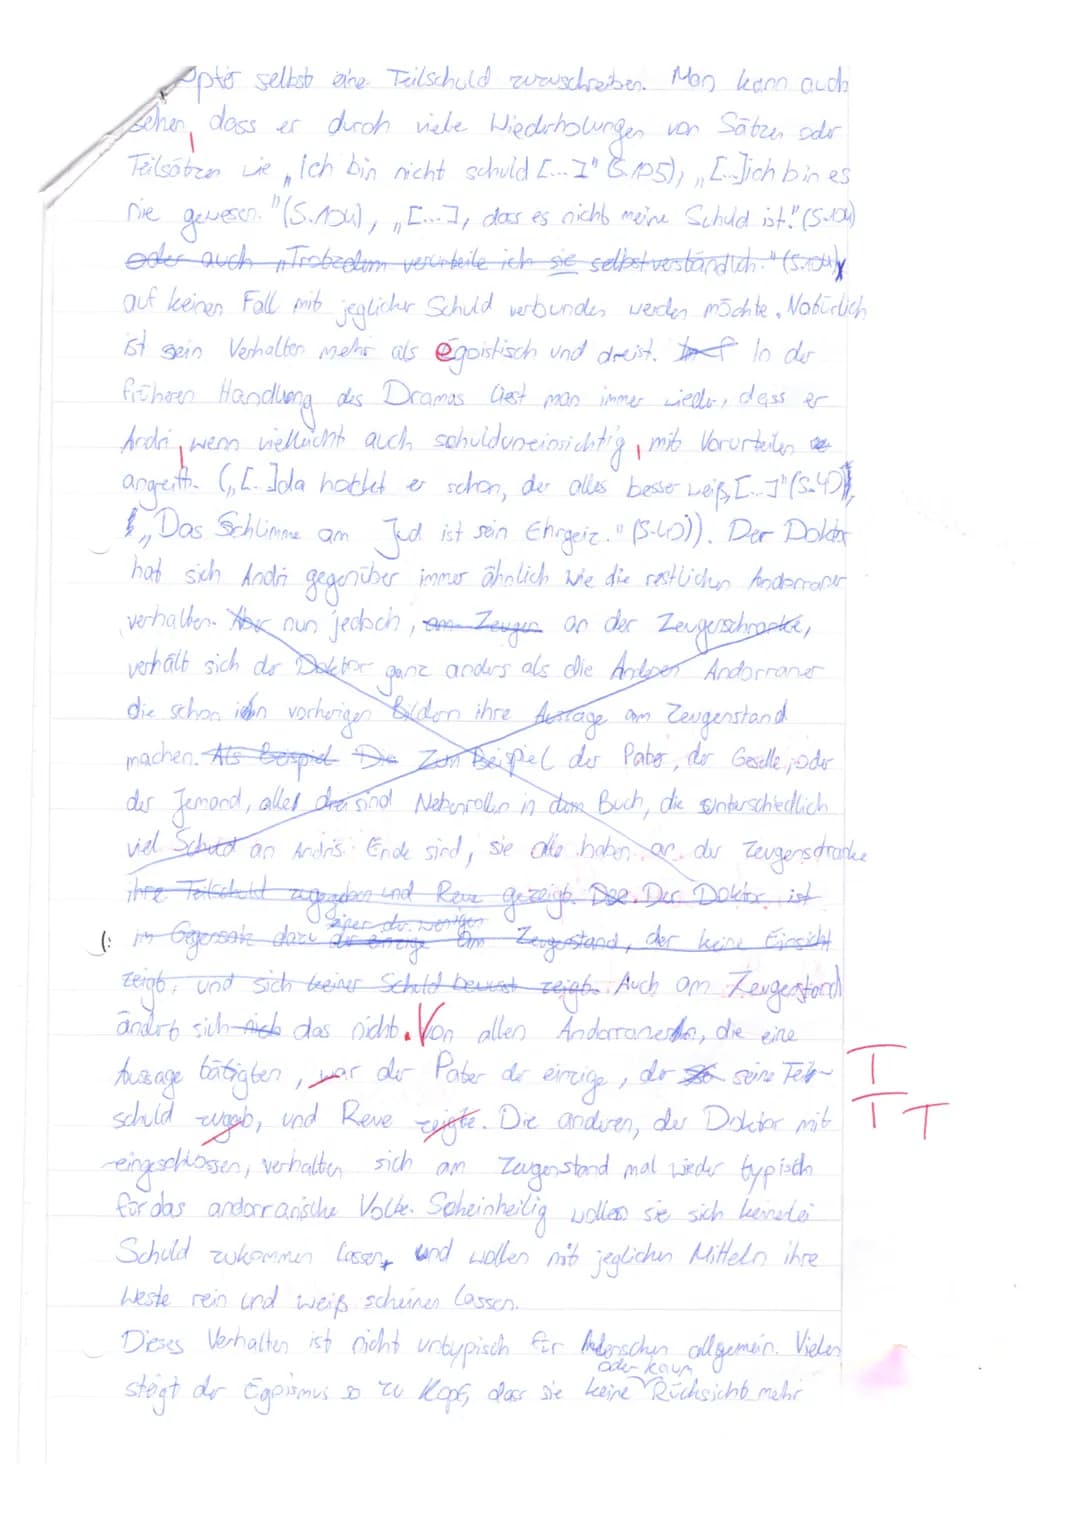 Opfer selbst eine Teilschuld zuzuschreiben. Man kann auch
sehen, dass er durch viele Wiederholungen von Sätzen oder
Teilsätzen wie „Ich bin nicht schuld [...]" (S.105), „[...]ich bin es
nie gewesen."(S.104), „[...], dass es nicht meine Schuld ist."(S.104)
oder auch „Trotzdem verurteile ich sie selbstverständlich." (S.104)
auf keinen Fall mit jeglicher Schuld verbunden werden möchte. Natürlich
ist sein Verhalten mehr als egoistisch und dreist. In der
früheren Handlung des Dramas liest man immer wieder, dass er
Andri, wenn vielleicht auch schulduneinsichtig, mit Vorurteilen
angreift. („[...]da hocket er schon, der alles besser weiß,[...]"(S.40),
„Das Schlimme am Jud ist sein Ehrgeiz." (S.40)). Der Doktor
hat sich Andri gegenüber immer ähnlich wie die restlichen Andorraner
verhalten. Aber nun jedoch, am Zeugen an der Zeugenschranke,
verhält sich der Doktor ganz anders als die Anderen Andorraner
die schon in vorherigen Bildern ihre Aussage am Zeugenstand
machen. Als Beispiel Die Zum Beispiel der Pater, der Geselle, oder
der Jemand, alle drei sind Nebenrollen in dem Buch, die unterschiedlich
viel Schuld an Andris Ende sind, sie alle haben an der Zeugenschranke
ihre Teilschuld zugegeben und Reue gezeigt. Der Doktor ist
einer der wenigen
im Gegensatz dazu der einzige am Zeugenstand, der keine Einsicht
zeigt, und sich keiner Schuld bewusst zeigt. Auch am Zeugenstand
ändert sich das nicht. Von allen Andorranern, die eine
Aussage tätigten, war der Pater der einzige, der seine Teil-
schuld zugab, und Reue zeigte. Die anderen, der Doktor mit
eingeschlossen, verhalten sich am Zeugenstand mal wieder typisch
für das andorranische Volke. Scheinheilig wollen sie sich keinerlei
Schuld zukommen lassen, und wollen mit jeglichen Mitteln ihre
Weste rein und weiß scheinen lassen.
Dieses Verhalten ist nicht untypisch für Menschen allgemein. Vielen
oder kaum
steigt der Egoismus so zu Kopf, dass sie keine Rücksicht mehr
T
T T